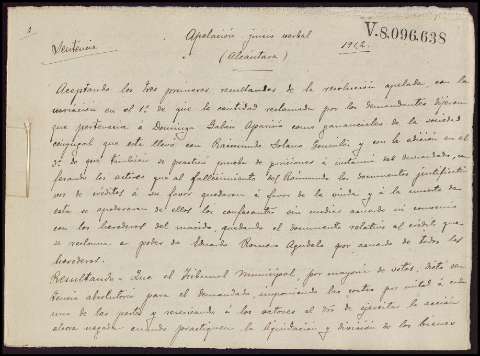 Apelación juicio verbal
V-8.096.638
Sentencia
(Alcántara)
1912.
Aceptando los tres primeros resultandos de la resolución apelada, con la
variación en el 1º de que la cantidad reclamada por los demandantes dijeron
que pertenecía á Dominga Galán Aparicio como gananciales de la sociedad
conyugal que esta llevó con Raimundo Solano González y con la adición en el
3º de que también se practicó prueba de posiciones á instancia del demandado, con
fesando los actores que al fallecimiento del Raimundo los documentos justificati
vos de créditos á su favor quedaron á favor de la viuda y á la muerte de
esta se apoderaron de ellos los confesantes sin mediar acuerdo ni convenio
con los herederos del marido, quedando el documento relativo al crédito que
se reclama en poder de Eduardo Romero Agudelo por acuerdo de todos los
herederos.
Resultando - Que el Tribunal Municipal, por mayoría de votos, dictó sen
tencia absolutoria para el demandado, imponiendo las costas por mitad á cada
una de las partes y reservando á los actores el dro de ejercitar la acción
ahora negada cuando practiquen la liquidación y división de los bienes